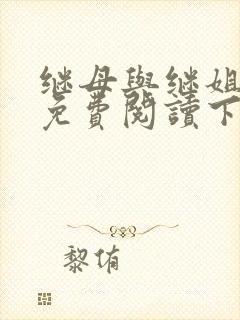 继母與继姐
免費閱讀下
黎侑